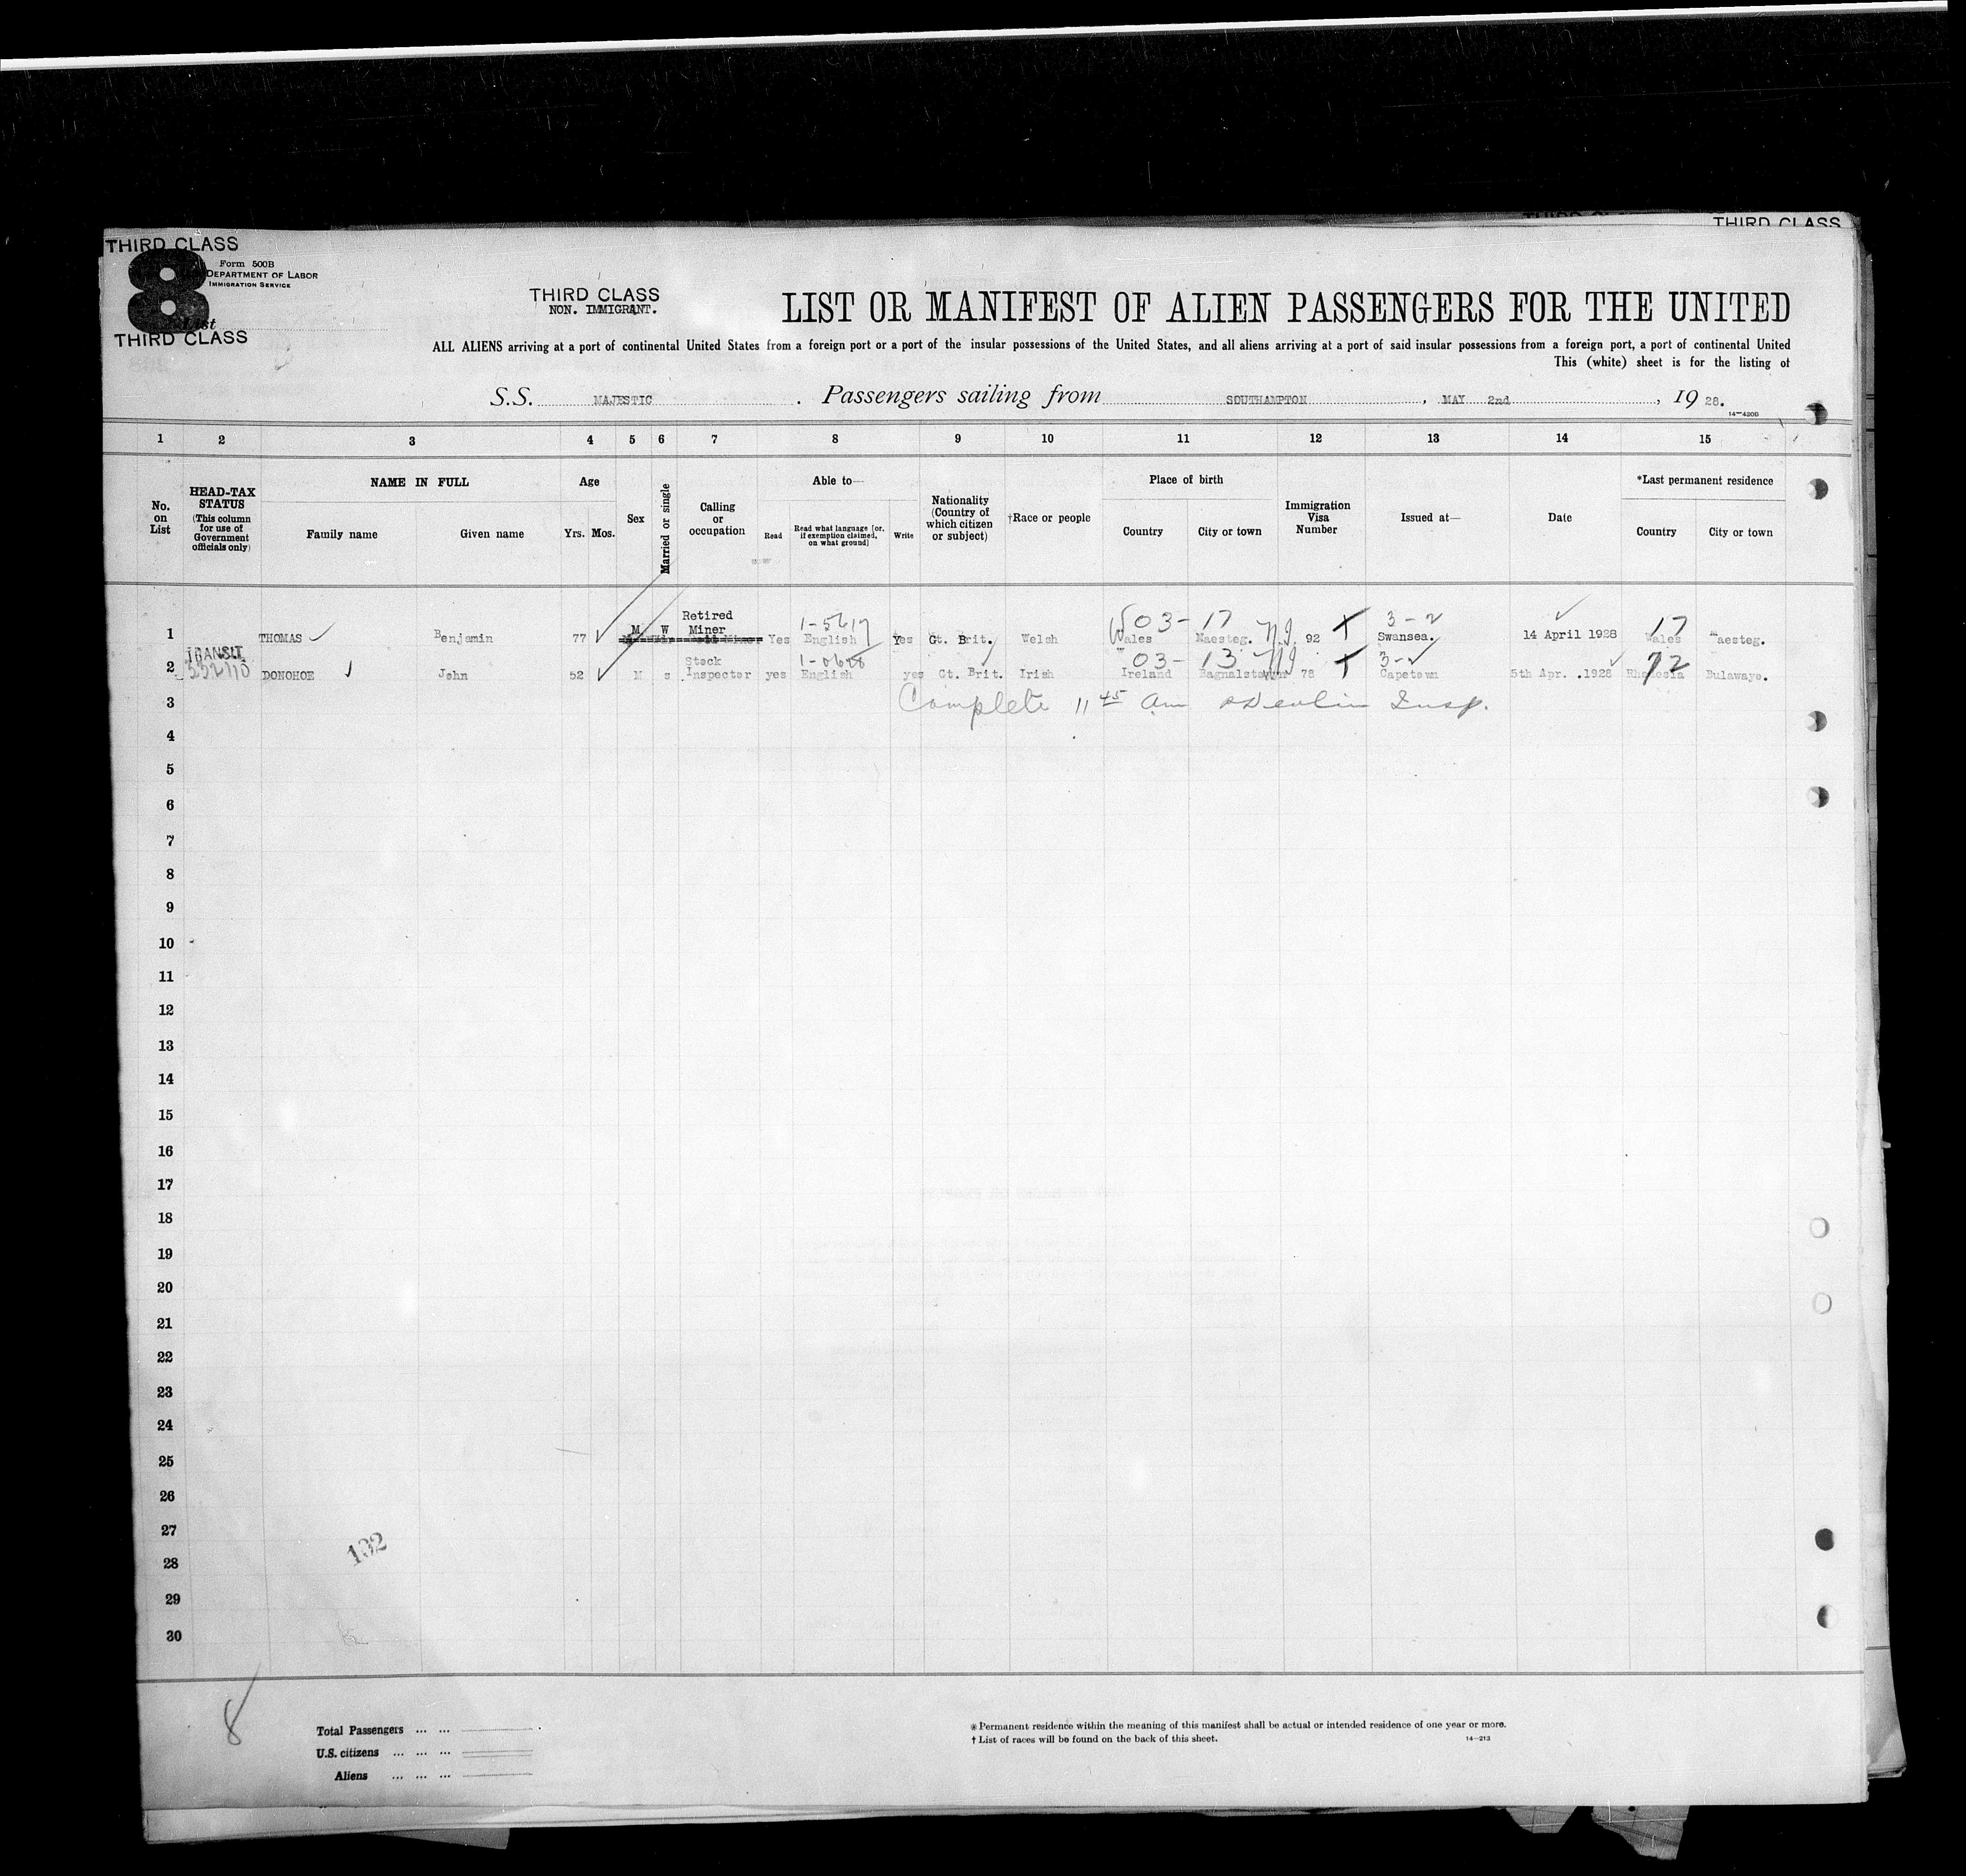 THIRD CLASS
THIRD CLASS
8
Form 500B
DEPARTMENT OF LABOR
IMMIGRATION SERVICE
List
THIRD CLASS
THIRD CLASS
NON. IMMIGRANT.
LIST OR MANIFEST OF ALIEN PASSENGERS FOR THE UNITED
ALL ALIENS arriving at a port of continental United States from a foreign port or a port of the insular possessions of the United States, and all aliens arriving at a port of said insular possessions from a foreign port, a port of continental United
This (white) sheet is for the listing of
S.S. MAJESTIC . Passengers sailing from SOUTHAMPTON , MAY 2nd , 19 28.
14—420B
1 2 3 4 5 6 7 8 9 10 11 12 13 14 15
No. on List
HEAD-TAX STATUS (This column for use of Government officials only)
NAME IN FULL
Family name Given name
Age
Yrs. Mos.
Sex
Married or single
Calling or occupation
Able to—
Read Read what language [or, if exemption claimed, on what ground] Write
Nationality (Country of which citizen or subject)
†Race or people
Place of birth
Country City or town
Immigration Visa Number
Issued at—
Date
*Last permanent residence
Country City or town
Retired 1-5617 03- 17 3-2 17
1 THOMAS Benjamin 77 M W Miner Yes English Yes Gt. Brit. Welsh Wales Maesteg. 92 Swansea. 14 April 1928 Wales Maesteg.
TRANSIT Stock 03- 13 3-2 72
2 DONOHOE John 52 M s Inspector yes English yes Gt. Brit. Irish Ireland Bagnalstown 78 Capetown 5th Apr. .1928 Rhodesia Bulawayo.
3 Complete 11 45 am Insp.
4
5
6
7
8
9
10
11
12
13
14
15
16
17
18
19
20
21
22
23
24
25
26
27
132
28
29
30
8
Total Passengers ... ...
U.S. citizens ... ... ...
Aliens ... ... ...
* Permanent residence within the meaning of this manifest shall be actual or intended residence of one year or more.
† List of races will be found on the back of this sheet.
14—213